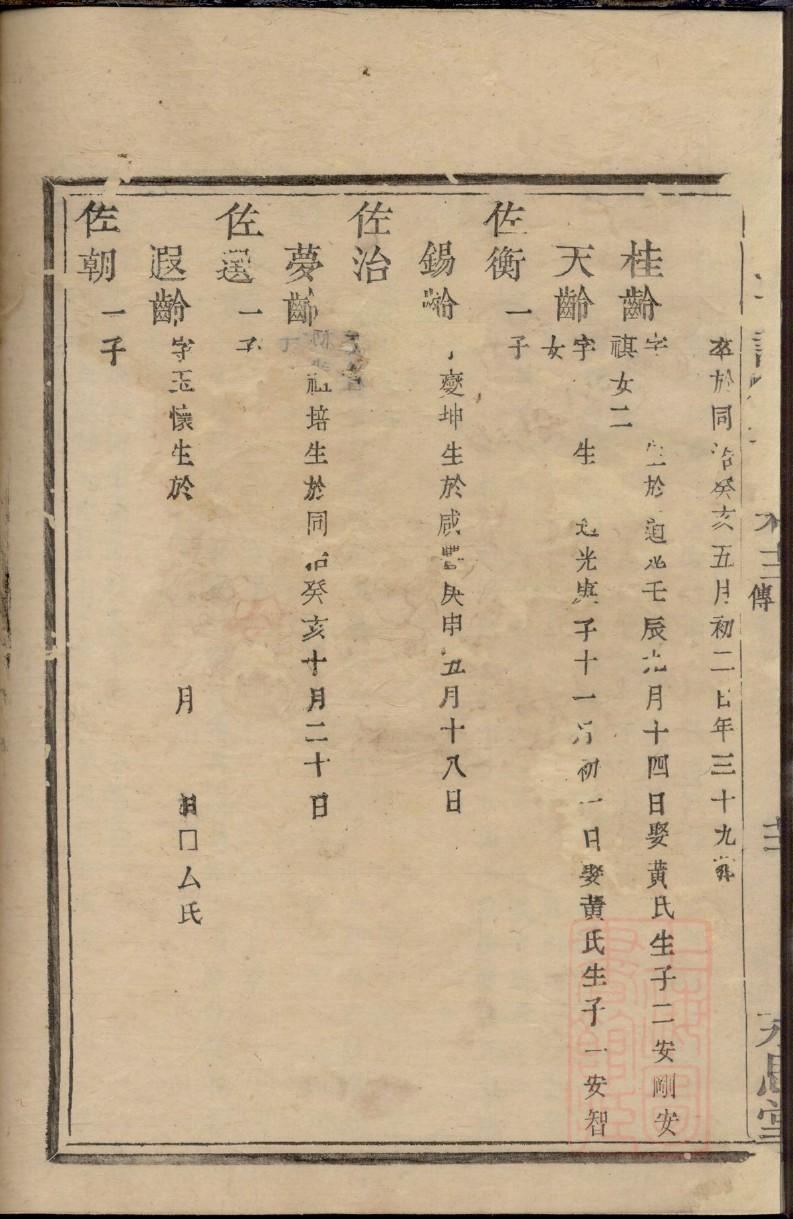 卒於同治癸亥五月初二日年三十九
桂齡字 生於道光壬辰九月十四日娶黃氏生子二安剛安
祺女二
天齡字 生 光庚子十一月初一日娶黃氏生子一安智
女
佐衡一子
錫齡 慶坤生於咸豐庚申五月十八日
佐治
夢齡 培生於同治癸亥十月二十日
佐選一子
遐齡字玉懷生於 月 口厶氏
佐朝一子
傳